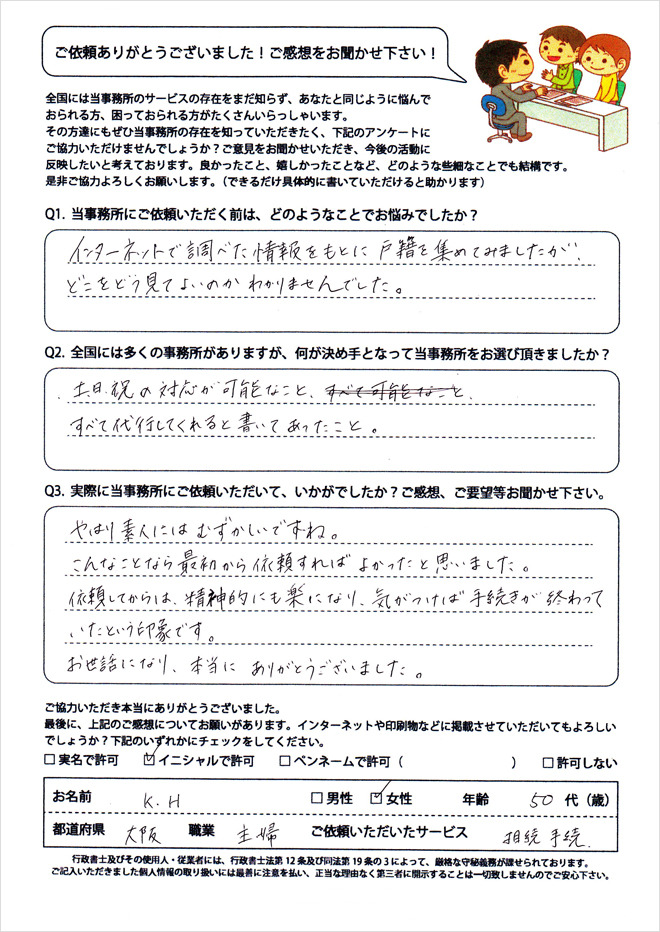 ご依頼ありがとうございました！ご感想をお聞かせ下さい！
全国には当事務所のサービスの存在をまだ知らず、あなたと同じように悩んで
おられる方、困っておられる方がたくさんいらっしゃいます。
その方達にもぜひ当事務所の存在を知っていただきたく、下記のアンケートに
ご協力いただけませんでしょうか？ご意見をお聞かせいただき、今後の活動に
反映したいと考えております。良かったこと、嬉しかったことなど、どのような些細なことでも結構です。
是非ご協力よろしくお願いします。（できるだけ具体的に書いていただけると助かります）
Q1. 当事務所にご依頼いただく前は、どのようなことでお悩みでしたか？
インターネットで調べた情報をもとに戸籍を集めてみましたが、
どこをどう見てよいのかわかりませんでした。
Q2. 全国には多くの事務所がありますが、何が決め手となって当事務所をお選び頂きましたか？
土日祝の対応が可能なこと、すべて可能なこと、
すべて代行してくれると書いてあったこと。
Q3. 実際に当事務所にご依頼いただいて、いかがでしたか？ご感想、ご要望等お聞かせ下さい。
やはり素人にはむずかしいですね。
こんなことなら最初から依頼すればよかったと思いました。
依頼してからは、精神的にも楽になり、気がつけば手続きが終わって
いたという印象です。
お世話になり、本当にありがとうございました。
ご協力いただき本当にありがとうございました。
最後に、上記のご感想についてお願いがあります。インターネットや印刷物などに掲載させていただいてもよろしい
でしょうか？下記のいずれかにチェックをしてください。
□実名で許可 ☑イニシャルで許可 □ペンネームで許可（ ） □許可しない
お名前 K.H □男性 ☑女性 年齢 50 代（歳）
都道府県 大阪 職業 主婦 ご依頼いただいたサービス 相続手続.
行政書士及びその使用人・従業者には、行政書士法第12条及び同法第19条の3によって、厳格な守秘義務が課せられております。
ご記入いただきました個人情報の取り扱いには最善に注意を払い、正当な理由なく第三者に開示することは一切致しませんのでご安心下さい。